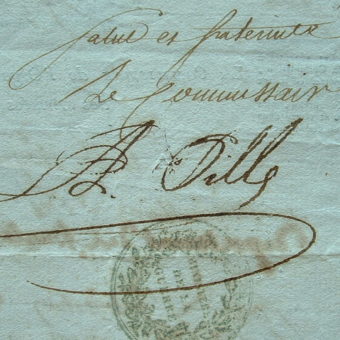 Salut et fraternité
Le Commissair
L. Pille